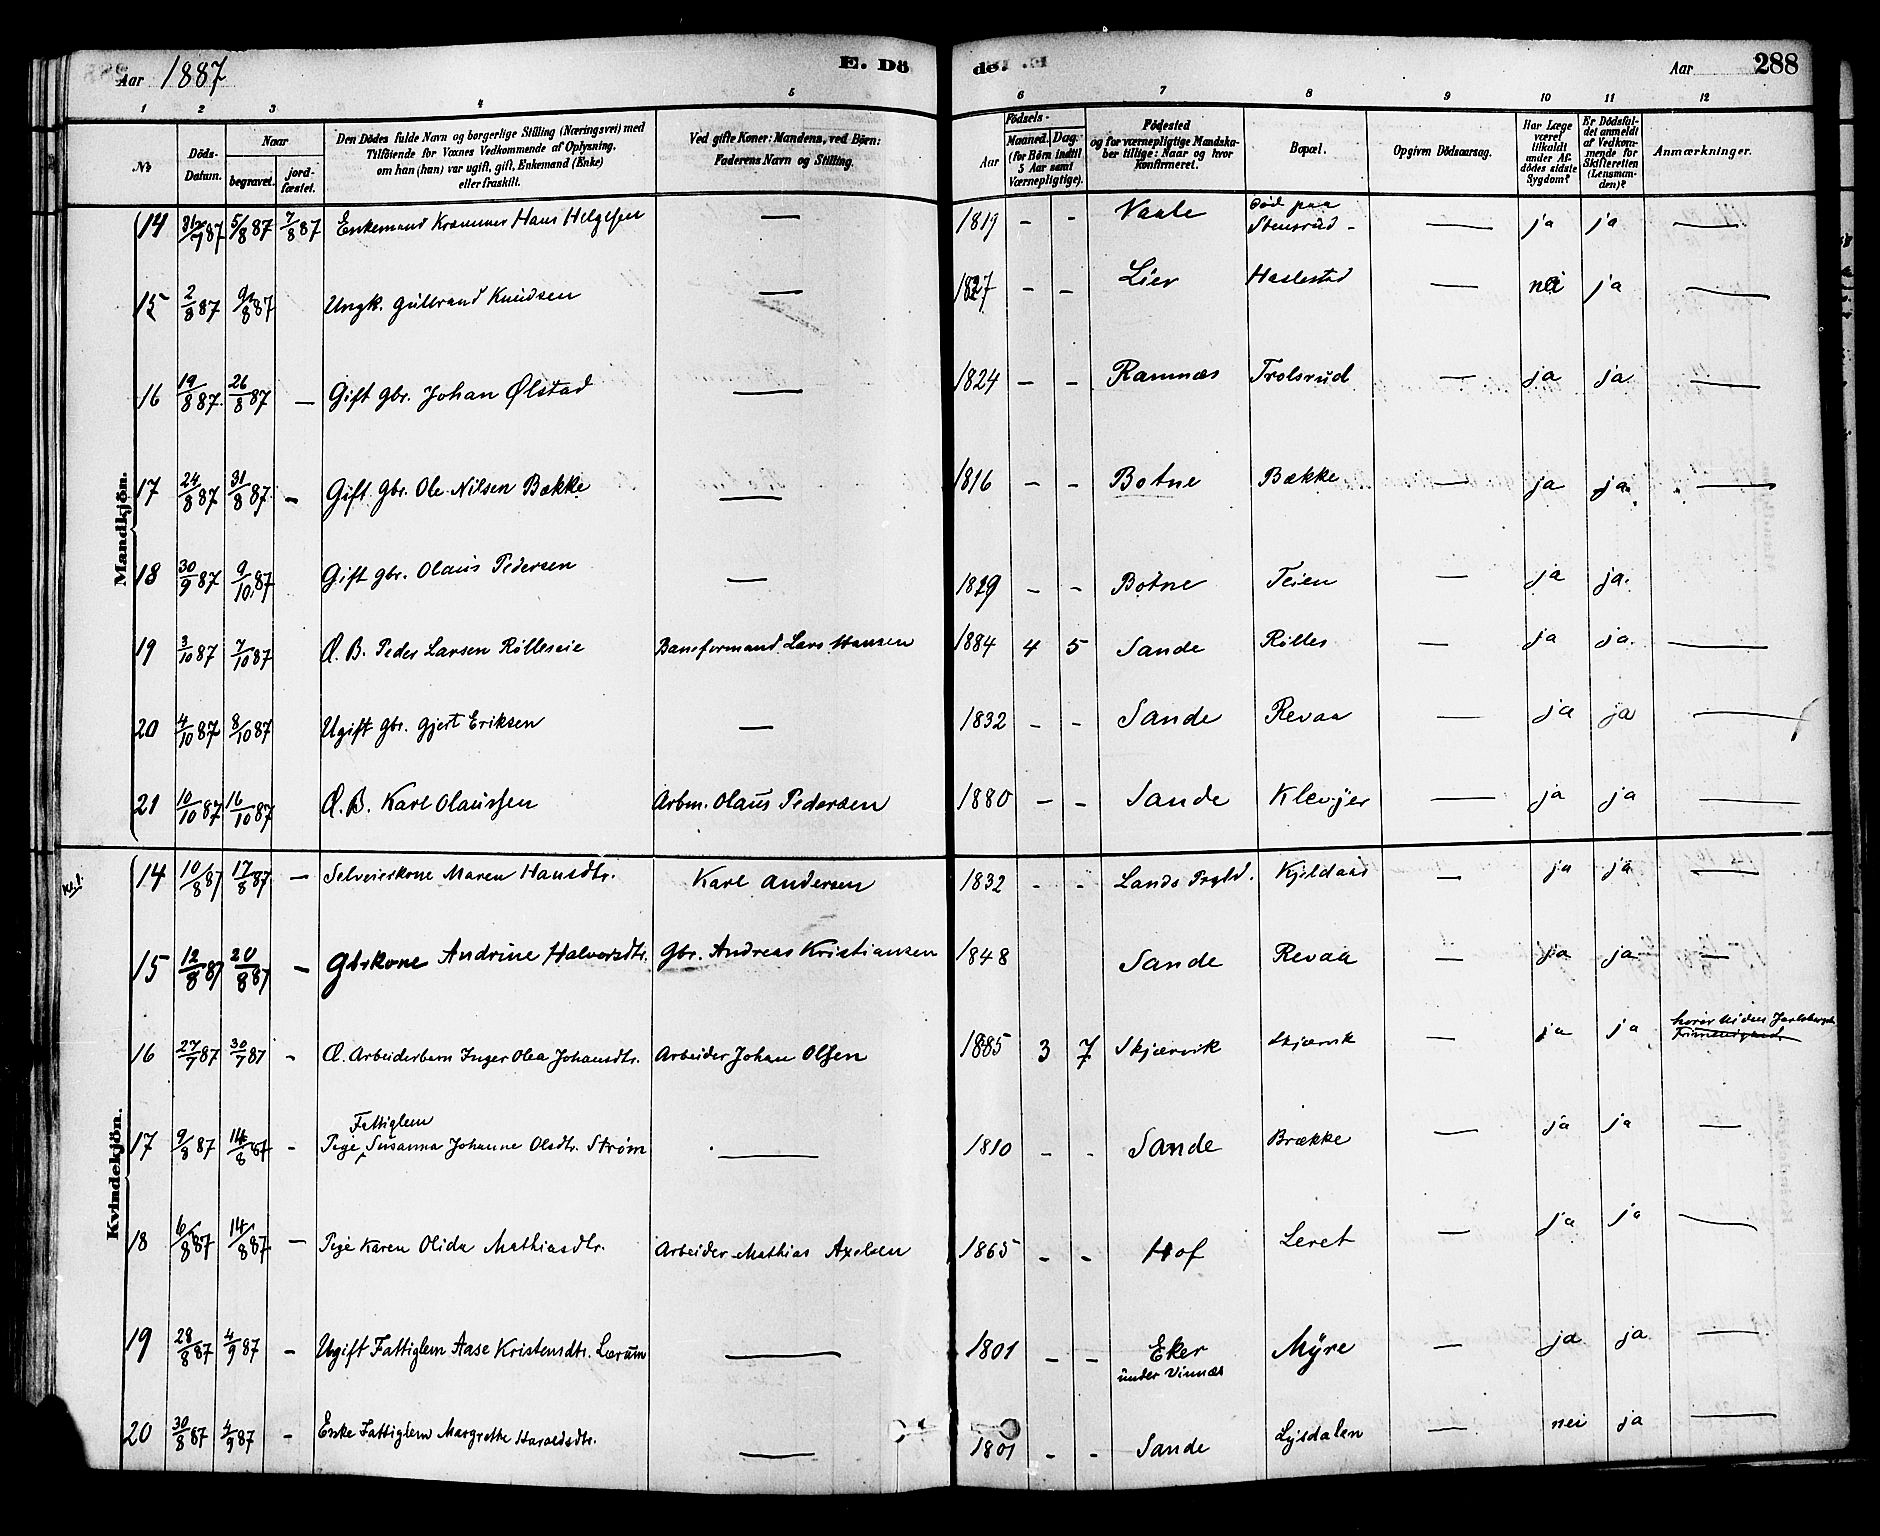 Aar 1887 E. Dö
de. Aar 288
1 2 3 4 5 6 7 8 9 10 11 12
No Döds-Datum. Naar begravet. jord-fæstet. Den Dödes fulde Navn og borgerlige Stilling (Næringsvei) med Tilföiende for Voxnes Vedkommende af Oplysning, om han (hun) var ugift, gift, Enkemand (Enke) eller fraskilt. Ved gifte Koner: Mandens, ved Börn: Faderens Navn og Stilling. Födsels- Aar Maaned. Dag. (for Börn indtil 5 Aar samt Værnepligtige). Födested og for værnepligtige Mandskaber tillige: Naar og hvor Konfirmeret. Bopæl. Opgiven Dödsaarsag. Har Læge været tilkaldt under Afdödes sidste Sygdom? Er Dödsfaldet anmeldt af Vedkommende for Skifteretten (Lensmanden)? Anmærkninger.
Mandkjön.
14 31/7 87 5/8 87 7/8 87 Enkemand Kræmmer Hans Helgesen — 1819 - - Vaale Død paa Stensrud - — ja ja —
15 2/8 87 9/8 87 Ungk. Gulbrand Knudsen — 1827 - - Lier Haslestad — nei ja —
16 19/8 87 26/8 87 — Gift Gbr. Johan Ølstad — 1824 - - Ramnæs Trolsrud — ja ja —
17 24/8 87 31/8 87 - Gift Gbr. Ole Nilsen Bække — 1816 - - Botne Bække — ja ja —
18 30/9 87 9/10 87 Gift gbr. Olaus Pedersen — 1829 - - Botne Teien — ja ja. —
19 3/10 87 7/10 87 Æ. B. Peder Larsen Rølleseie Baneformand Lars Hansen 1884 4 5 Sande Rølles — ja ja. —
20 4/10 87 8/10 87 Ugift Gbr. Gjert Eriksen — 1832 - - Sande Revaa — ja ja —
21 10/10 87 16/10 87 Æ. B. Karl Olaussen Arbm. Olaus Pedersen 1880 - - Sande Klevjer — ja ja —
Kvindekjön.
14 10/8 87 17/8 87 - Selveierkone Maren Hansdtr. Karl Andersen 1832 - - Lands Prgld. Kjeldaas — ja ja —
15 12/8 87 20/8 87 - Gbrkone Andrine Halvorsdtr. Gbr. Andreas Kristiansen 1848 Sande Revaa — ja ja —
16 27/7 87 30/7 87 - Æ. Arbeiderbarn Inger Olea Johansdtr. Arbeider Johan Olsen 1885 3 7 Skjærvik Skjærvik — ja ja
17 9/8 87 14/8 87 - Pige Fattiglem Susanna Johanne Olsdtr. Strøm — 1810 - - Sande Brække — ja ja —
18 6/8 87 14/8 87 - Pige Karen Olida Mathiasdtr. Arbeider Mathias Axelsen 1865 - - Hof Leret — ja ja —
19 28/8 87 4/9 87 - Ugift Fattiglem Aase Kristensdtr. Lerum — 1801 - - Eker under Vinnæs Myre — ja ja —
20 30/8 87 4/9 87 - Enke Fattiglem Margrethe Haraldsdtr. — 1801 - - Sande Lysdalen — nei ja —